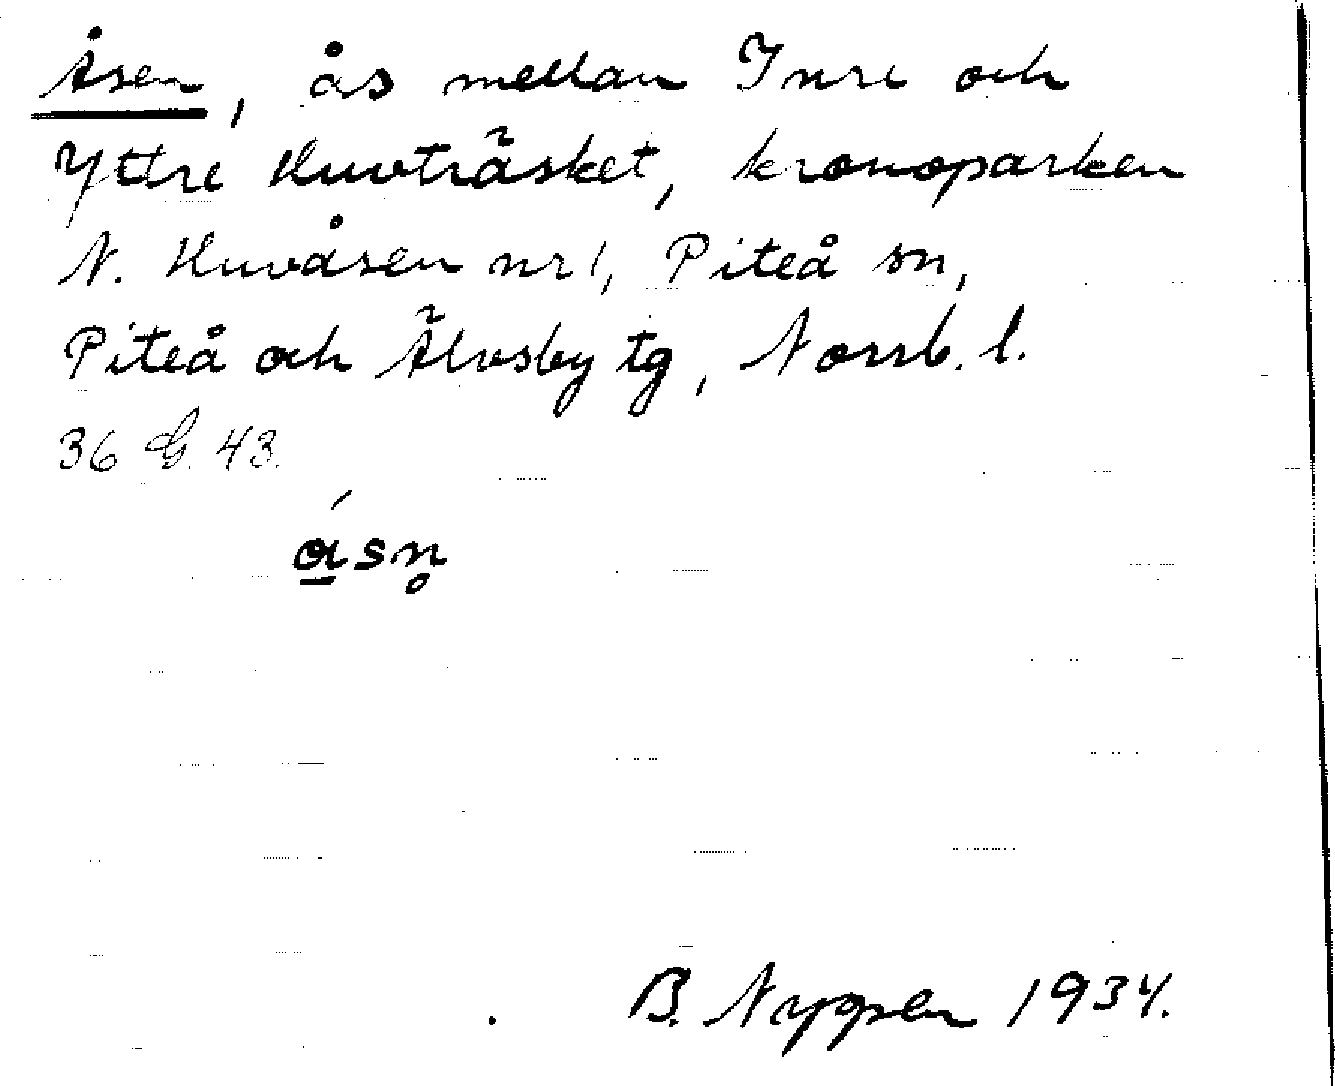 Åsen, ås mellan Inre och
Yttre Huvträsket, kronoparken
N. Huvåsen nr 1, Piteå sn,
Piteå och Älvsby tg, Norrb. l.
36 G. 43.
ásn̥
B. Nygren 1934.